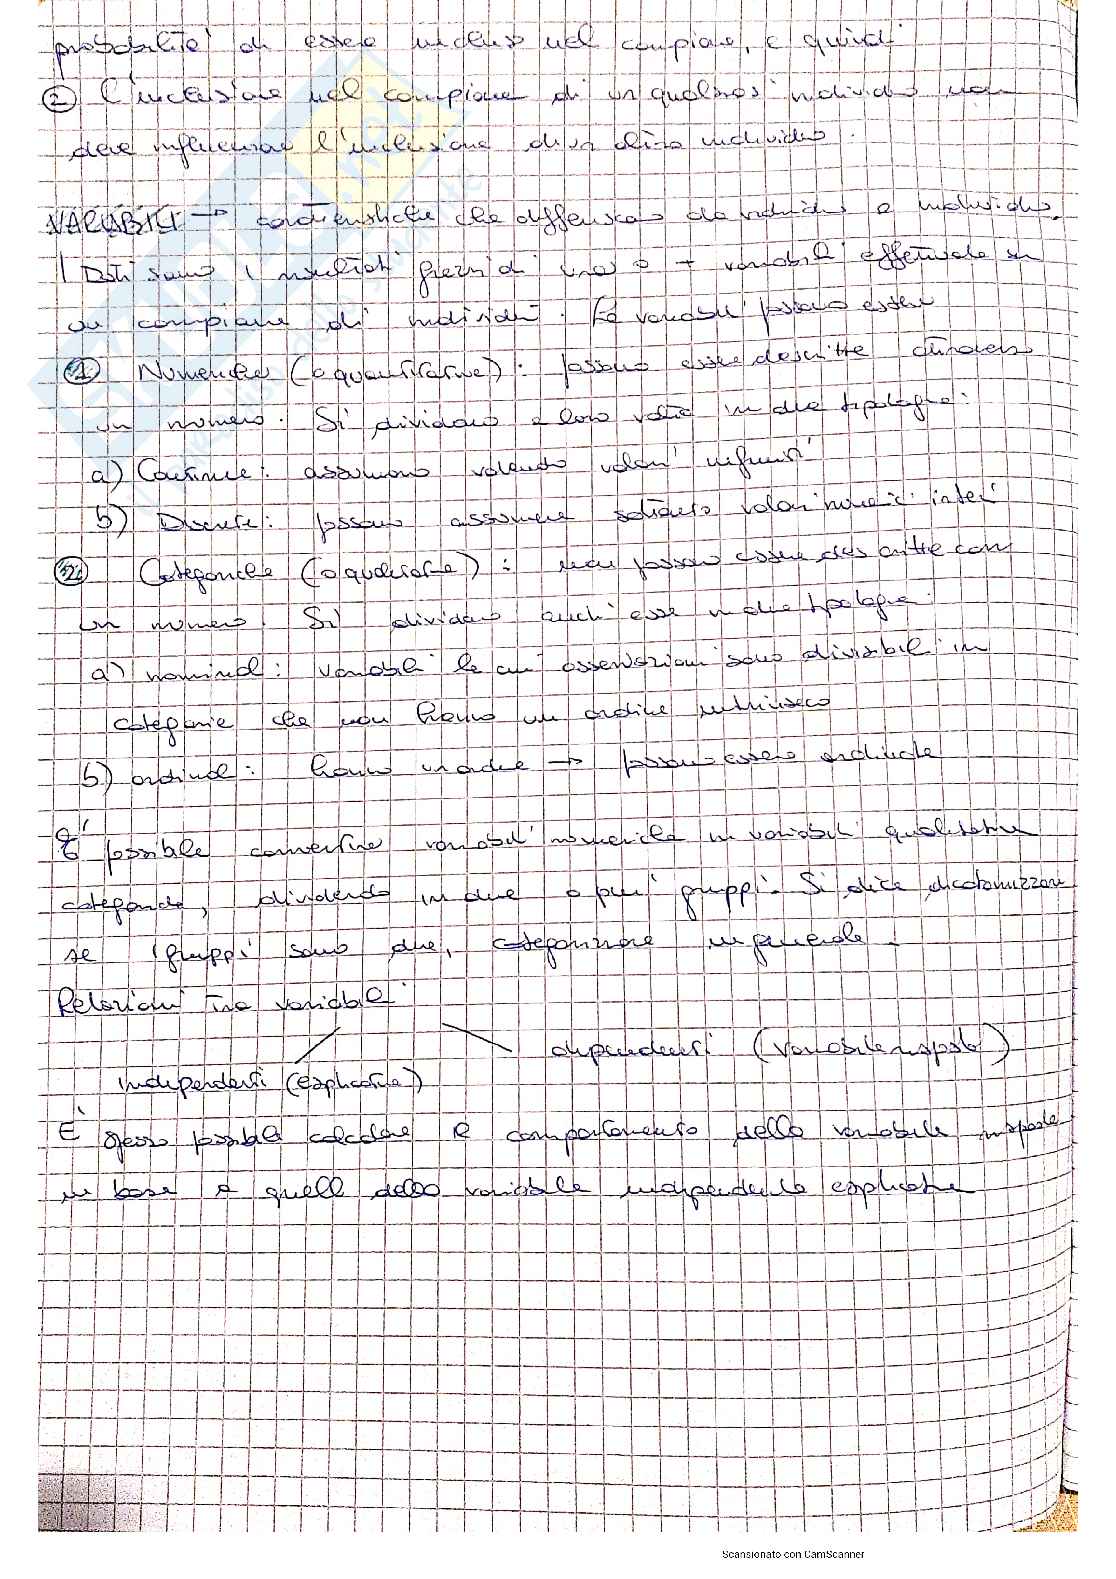 probabilità di essere incluso nel campione, e quindi
② L'inclusione nel campione di un qualsiasi individuo non
deve influenzare l'inclusione di un altro individuo.
VARIABILI → caratteristiche che differiscono da individuo a individuo.
I Dati sono i risultati di una o + variabili effettuate su
un campione di individui. Le variabili possono essere
① Numeriche (o quantitative): possono essere descritte attraverso
un numero. Si dividono a loro volta in due tipologie:
a) Continue: assumono valori infiniti
b) Discrete: possono assumere soltanto valori numerici interi
② Categoriche (o qualitative): non possono essere descritte con
un numero. Si dividono anch'esse in due tipologie:
a) nominali: variabili le cui osservazioni sono divisibili in
categorie che non hanno un ordine intrinseco
b) ordinali: hanno un ordine → possono essere ordinate
E' possibile convertire variabili numeriche in variabili qualitative
categoriche, dividendo in due o più gruppi. Si dice dicotomizzare
se i gruppi sono due, categorizzare in generale.
Relazioni tra variabili
dipendenti (variabile risposta)
indipendenti (esplicativa)
E' spesso possibile calcolare il comportamento della variabile risposta
in base a quello della variabile indipendente esplicativa
Scansionato con CamScanner